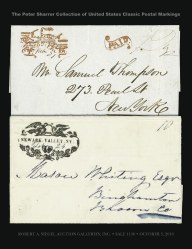 The Peter Skarrer Collection of United States Classic Postal Markings
PAID
Mr. Samuel Thompson
273. Pearl St
New York
NEWARK VALLEY, NY.
Mason Whiting Esqr
Binghamton
Broom Co
ROBERT A. SIEGEL AUCTION GALLERIES, INC.